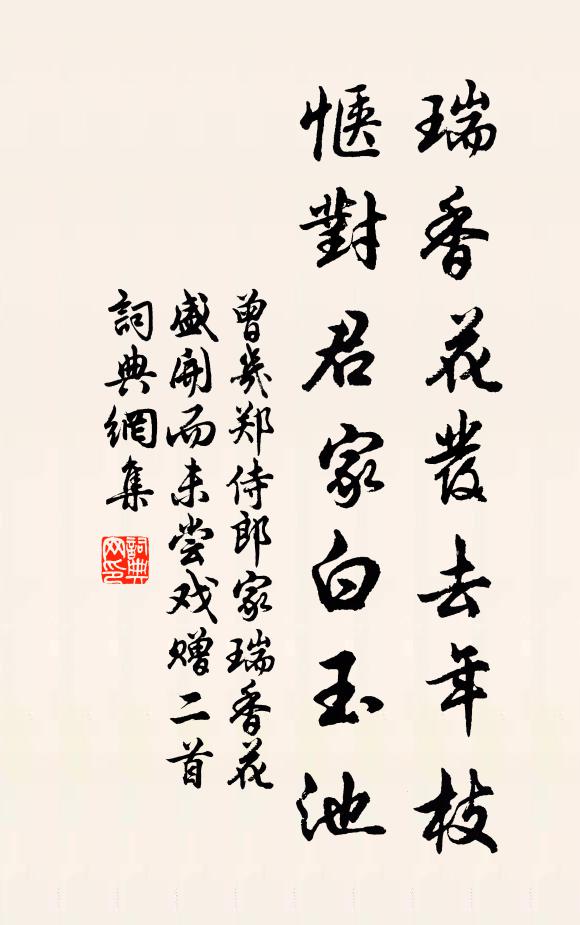 瑞香花發去年枝
愜對君家白玉池
曾幾郑侍郎家瑞香花
盛開而未尝戏赠二首
詞典網集
詞典
网印